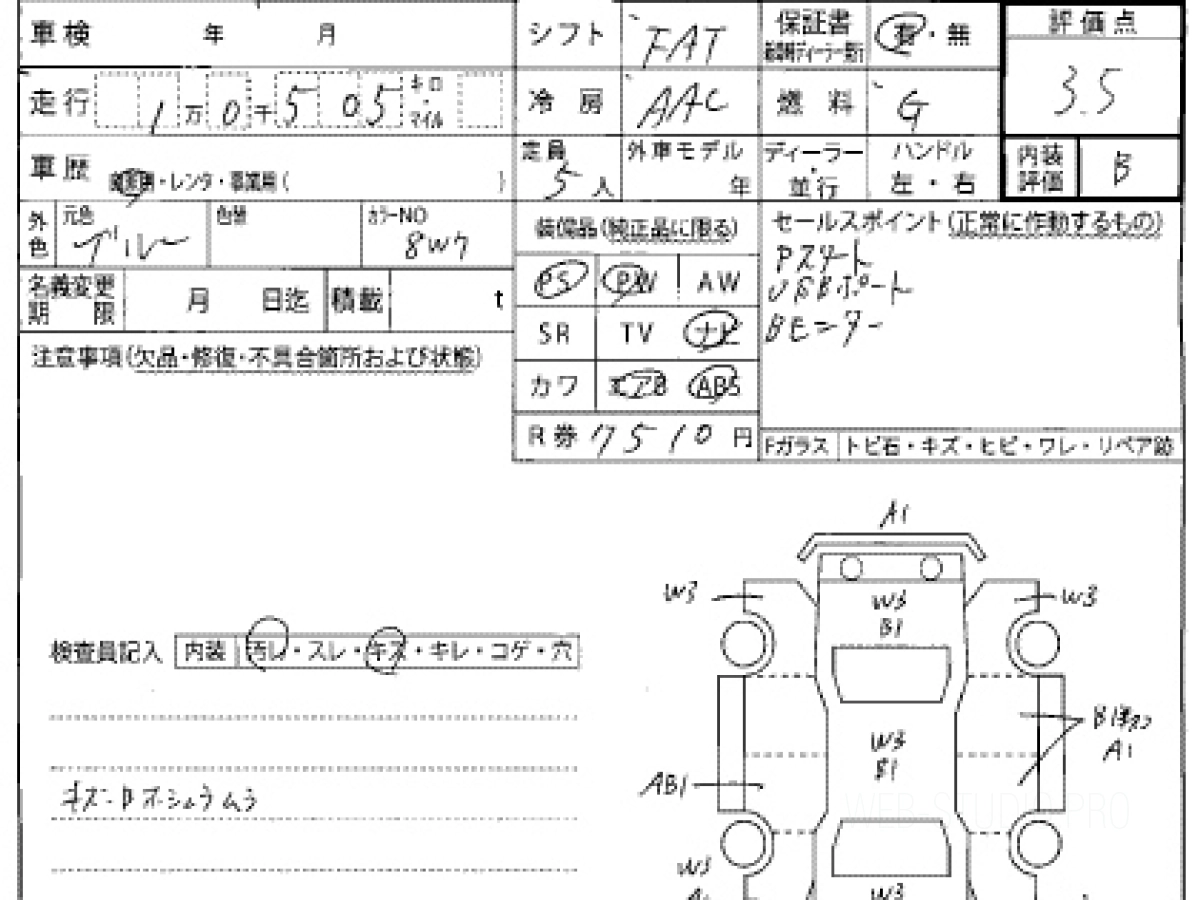 車検 年 月 シフト FAT 保証書 有・無 評価点
走行 1万0千505 キロ・マイル 冷房 AAC 燃料 G 3.5
車歴 自家用・レンタ・事業用( ) 定員 5人 外車モデル 年 ディーラー 並行 ハンドル 左・右 内装評価 B
外色 元色 ブルー 色替 カラーNO 8W7
装備品(純正品に限る) セールスポイント(正常に作動するもの)
PS PW AW Pスタート
USBポート
名義変更期限 月 日迄 積載 t
SR TV ナビ Bモニター
注意事項(欠品・修復・不具合箇所および状態)
カワ エアB ABS
R券 7510円 Fガラス トビ石・キズ・ヒビ・ワレ・リペア跡
A1
W3 W3
W3
B1
検査員記入 内装 汚レ・スレ・キズ・キレ・コゲ・穴
W3
B1
A1
AB1
WEB-STUDIO.PRO
W3
A1 W3